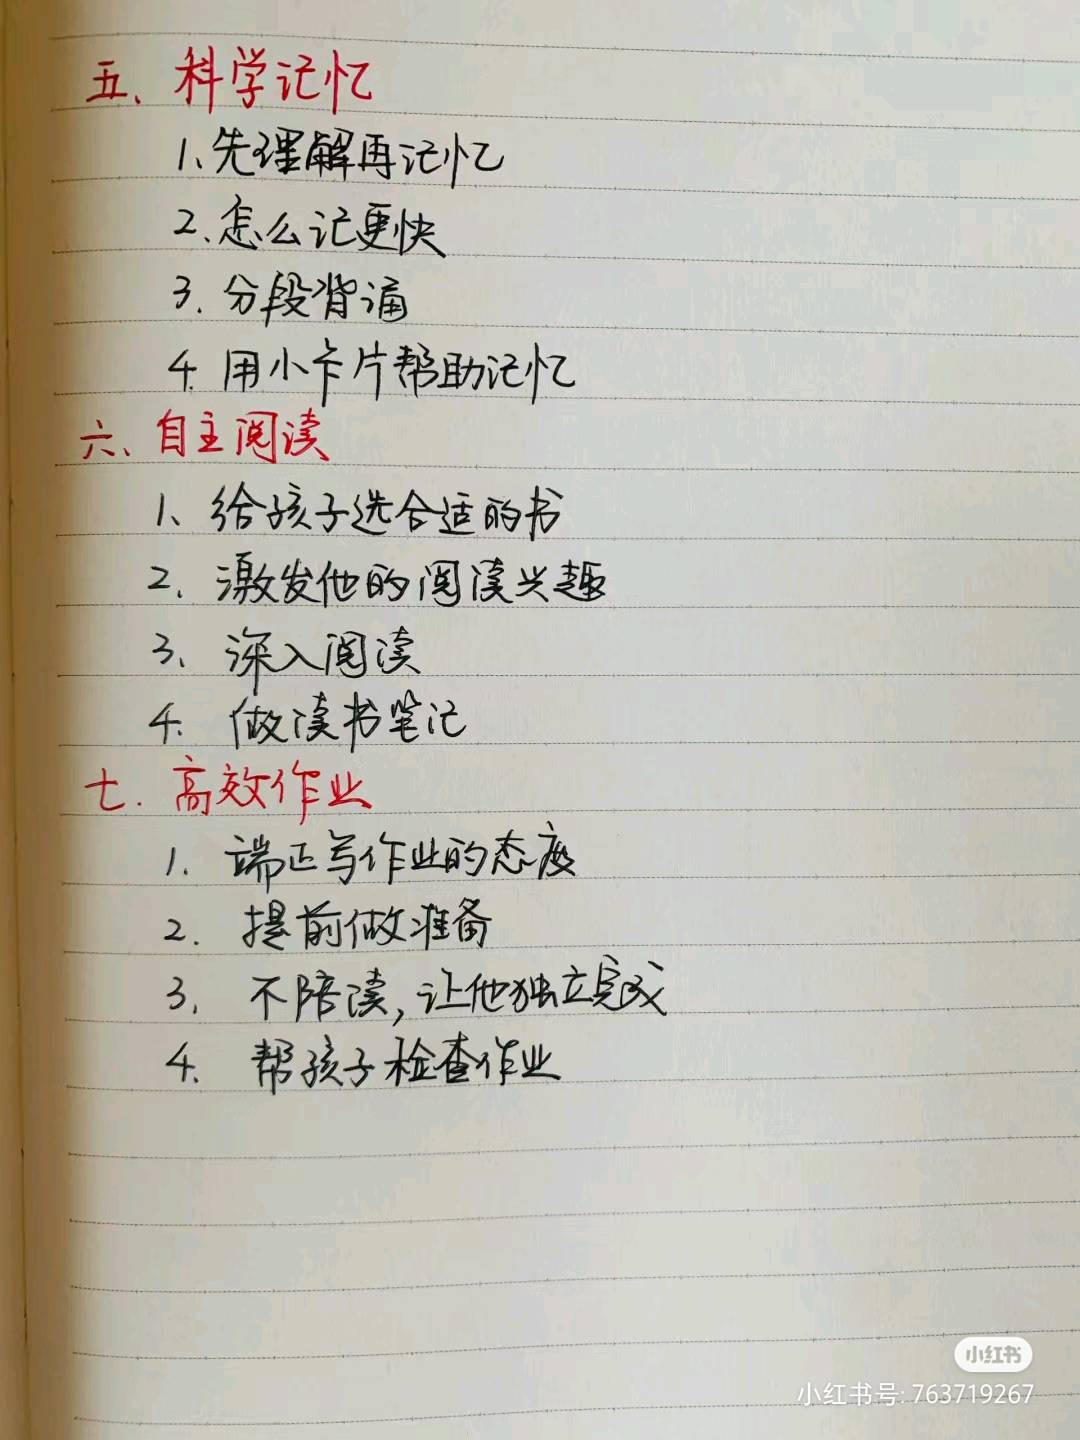 五、科学记忆
1、先理解再记忆
2、怎么记更快
3、分段背诵
4. 用小卡片帮助记忆
六、自主阅读
1、给孩子选合适的书
2、激发他的阅读兴趣
3、深入阅读
4. 做读书笔记
七. 高效作业
1. 端正写作业的态度
2. 提前做准备
3. 不陪读,让他独立完成
4. 帮孩子检查作业
小红书
小红书号: 763719267